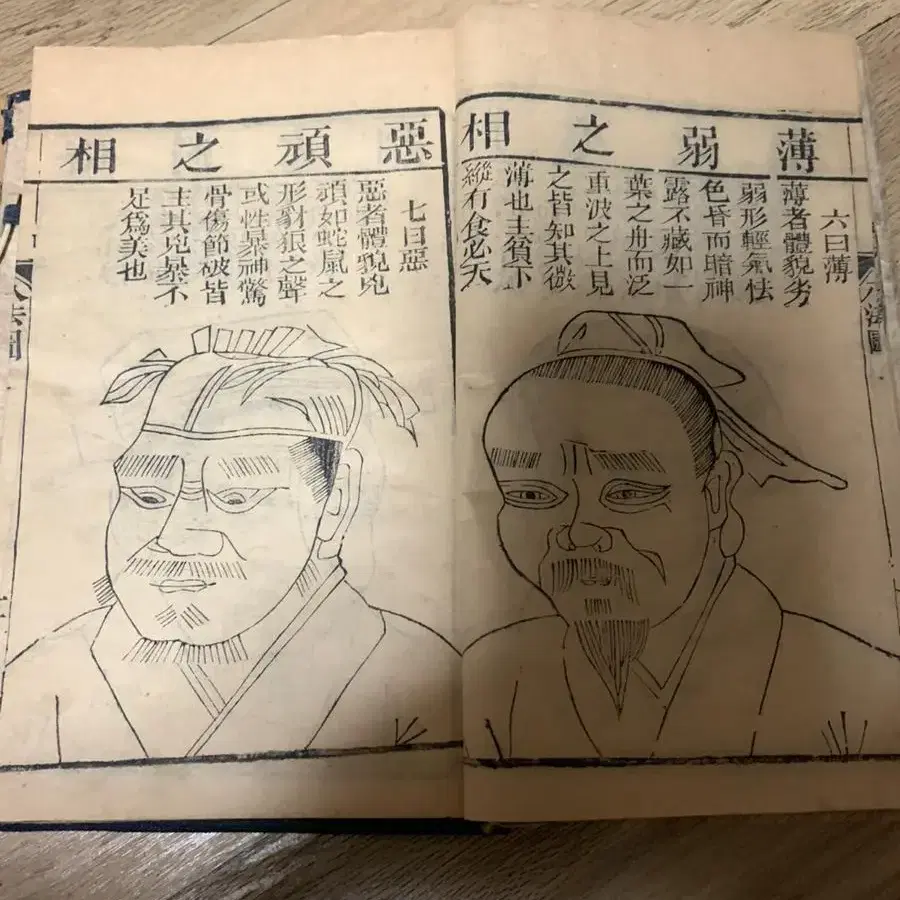 薄弱之相
六曰薄
薄者體貌劣
弱形輕氣怯
色昏而暗神
露不藏如一
葉之舟而泛
重波之上見
之皆知其微
薄也主貧下
縱有食必天
惡頑之相
七曰惡
惡者體貌兇
頑如蛇鼠之
形豺狼之聲
或性暴神驚
骨傷節破皆
主其兇暴不
足爲美也
八法圖
八法圖